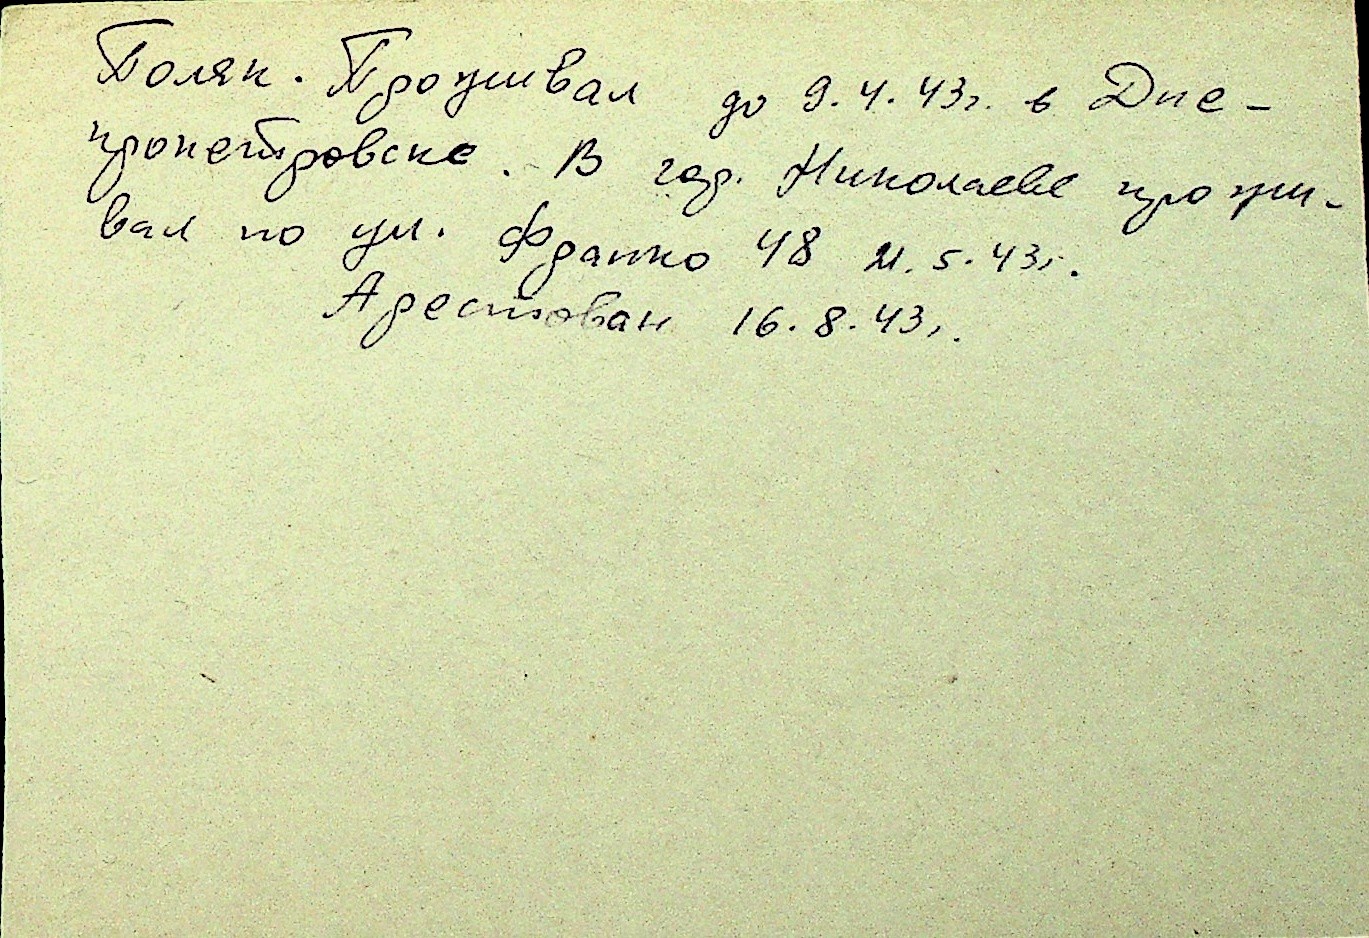 Поляк. Проживал до 9.4.43г. в Дне-
пропетровске. В гор. Николаеве прожи-
вал по ул. Франко 48 21.5.43г.
Арестован 16.8.43г.